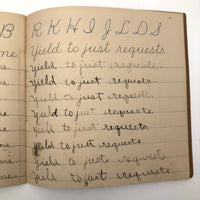 B R K H I J L D S
me Yield to just requests
yield to just requests.
yield to just requests.
yield to just requests.
Yield to just requests
yield to just requests.
yield to just requests
yield to just requests.
yield to just requests.